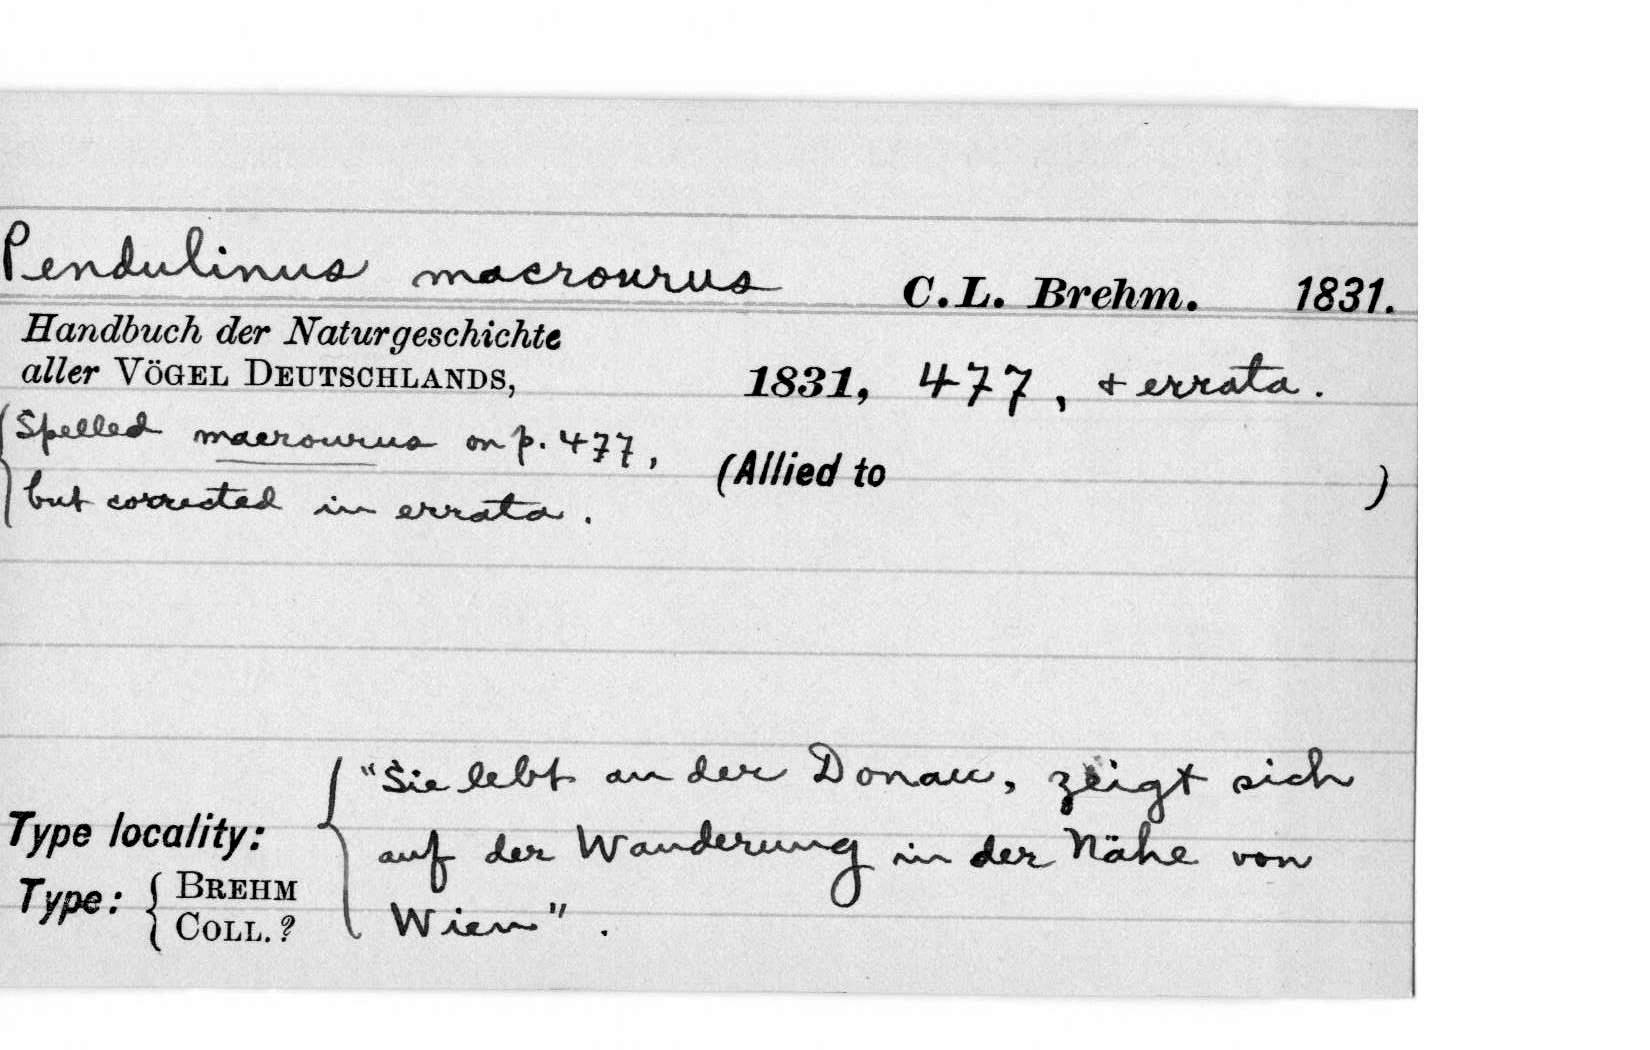 Pendulinus macrourus C.L. Brehm. 1831.
Handbuch der Naturgeschichte
aller VÖGEL DEUTSCHLANDS, 1831, 477, & errata.
Spelled maerourus on p. 477,
(Allied to )
but corrected in errata.
"Sie lebt an der Donau, zeigt sich
Type locality: auf der Wanderung in der Nähe von
Type: BREHM
COLL. ? Wien".